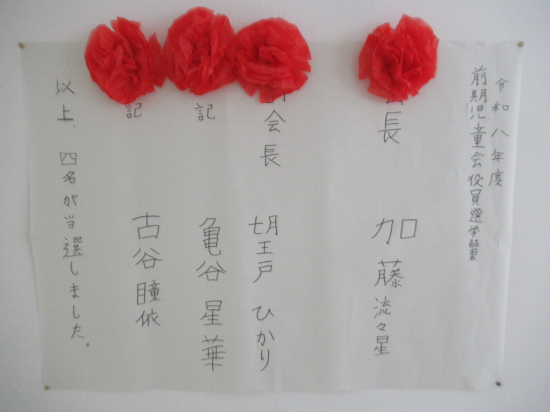 令和八年度
前期児童会役員選挙結果
長 加藤流々星
会長 胡王戸ひかり
記 亀谷星華
記 古谷瞳依
以上、四名が当選しました。